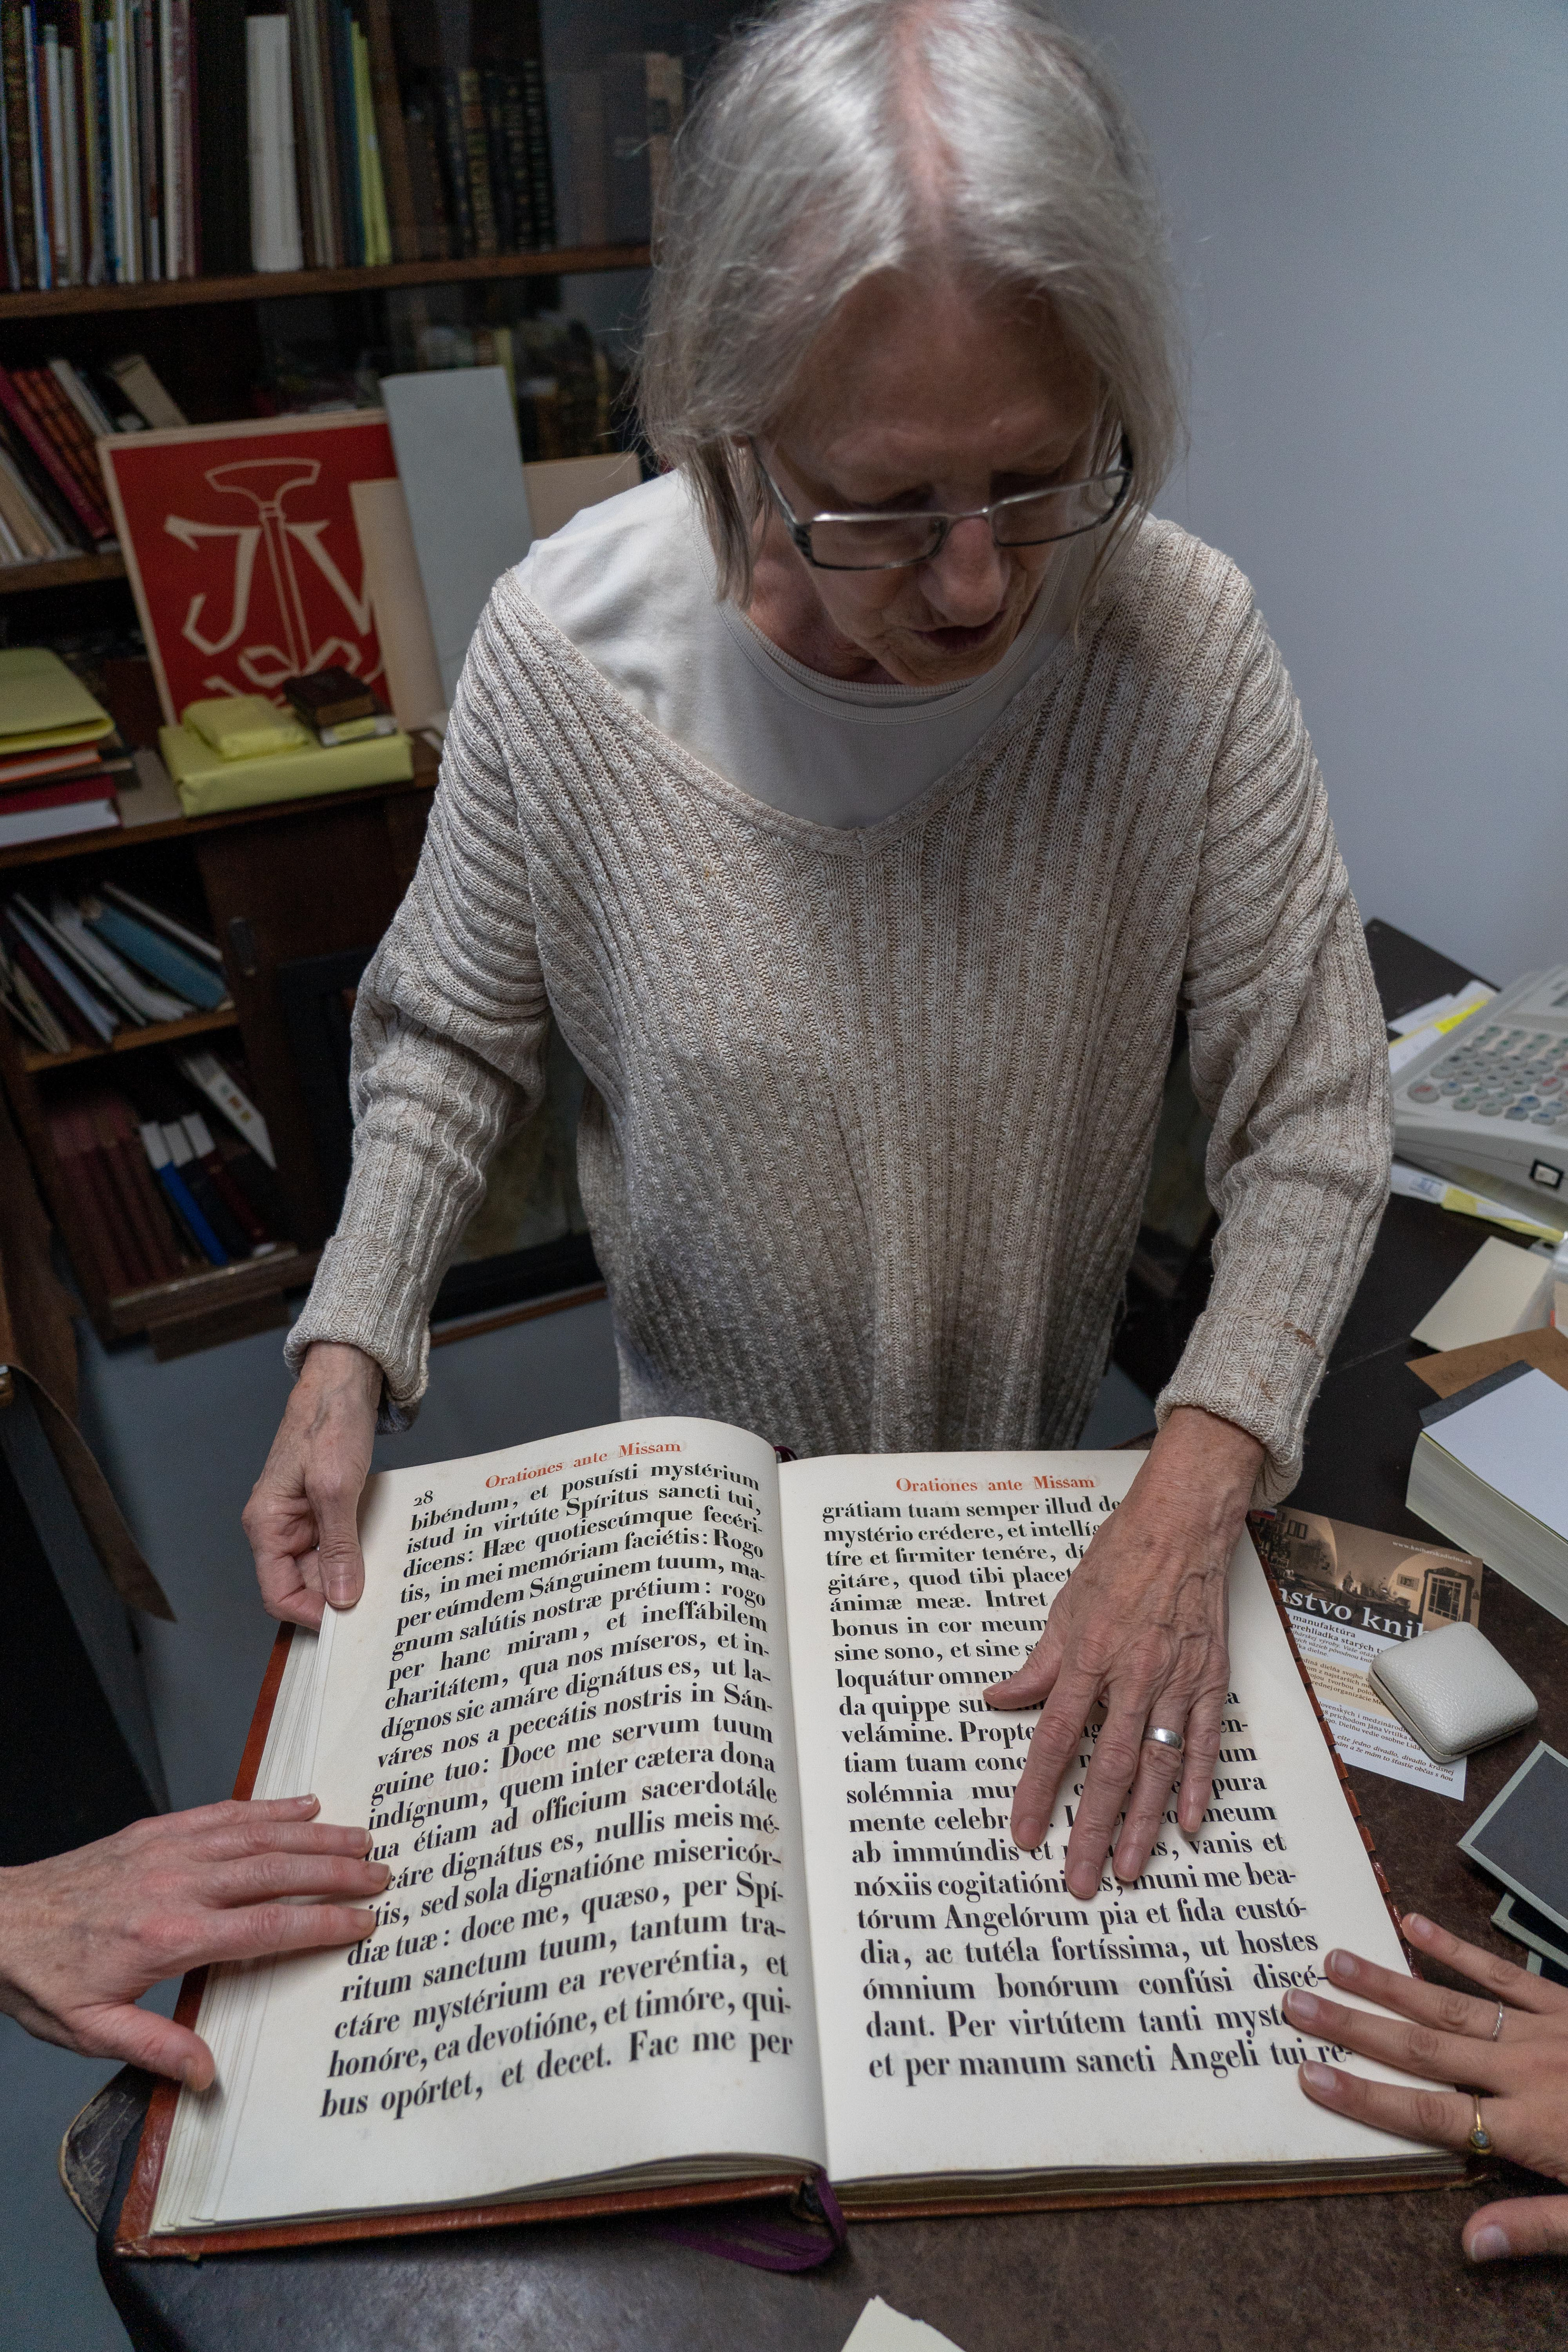 JV
28
Orationes ante Missam
bibéndum, et posuísti mystérium
istud in virtúte Spíritus sancti tui,
dicens: Hæc quotiescúmque fecéri-
tis, in mei memóriam faciétis: Rogo
per eúmdem Sánguinem tuum, ma-
gnum salútis nostræ prétium: rogo
per hanc miram, et ineffábilem
charitátem, qua nos míseros, et in-
dígnos sic amáre dignátus es, ut la-
váres nos a peccátis nostris in Sán-
guine tuo: Doce me servum tuum
indígnum, quem inter cætera dona
tua étiam ad officium sacerdotále
cáre dignátus es, nullis meis mé-
itis, sed sola dignatióne misericór-
diæ tuæ: doce me, quæso, per Spí-
ritum sanctum tuum, tantum tra-
ctáre mystérium ea reveréntia, et
honóre, ea devotióne, et timóre, qui-
bus opórtet, et decet. Fac me per
Orationes ante Missam
grátiam tuam semper illud de
mystério crédere, et intellíg
tíre et firmiter tenére, dí
gitáre, quod tibi placet
ánimæ meæ. Intret
bonus in cor meum
sine sono, et sine s
loquátur omnem
da quippe su
velámine. Propte en-
tiam tuam conc um
solémnia mu pura
mente celebr meum
ab immúndis et vanis et
nóxiis cogitatióni s; muni me bea-
tórum Angelórum pia et fida custó-
dia, ac tutéla fortíssima, ut hostes
ómnium bonórum confúsi discé-
dant. Per virtútem tanti mysté
et per manum sancti Angeli tui re-
nstvo knih
manufaktúra
prehliadka starých